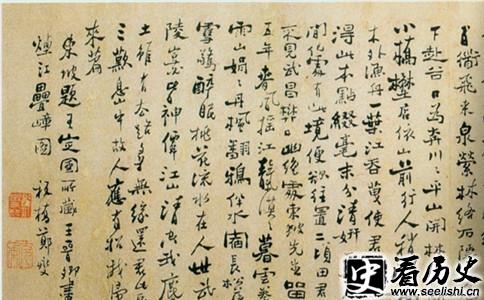 百衜飛來泉縈林絡石隱
下赴谷口為奔川川平山開林
小橋埜店依山前行人稍
木外漁舟一葉江吞天使君
得此本點綴毫末分清妍
間何處有此境便欲往置二頃田君
不見武昌樊口幽絕處東坡先生留
五年春風搖江天漠漠暮雲卷
雨山娟娟丹楓翻鴉伴水宿長松落
雪驚醉眠桃花流水在人世武
陵豈必皆神僊江山清空我塵
土雖有去路尋無緣還君此
三歎息山中故人應有招我歸
來篇
東坡題王定國所藏王晉卿畫
煙江疊嶂圖 板橋鄭燮
史看历史
www.seelishi.cn